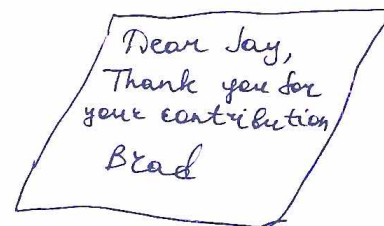 Dear Jay,
Thank you for
your contribution
Brad